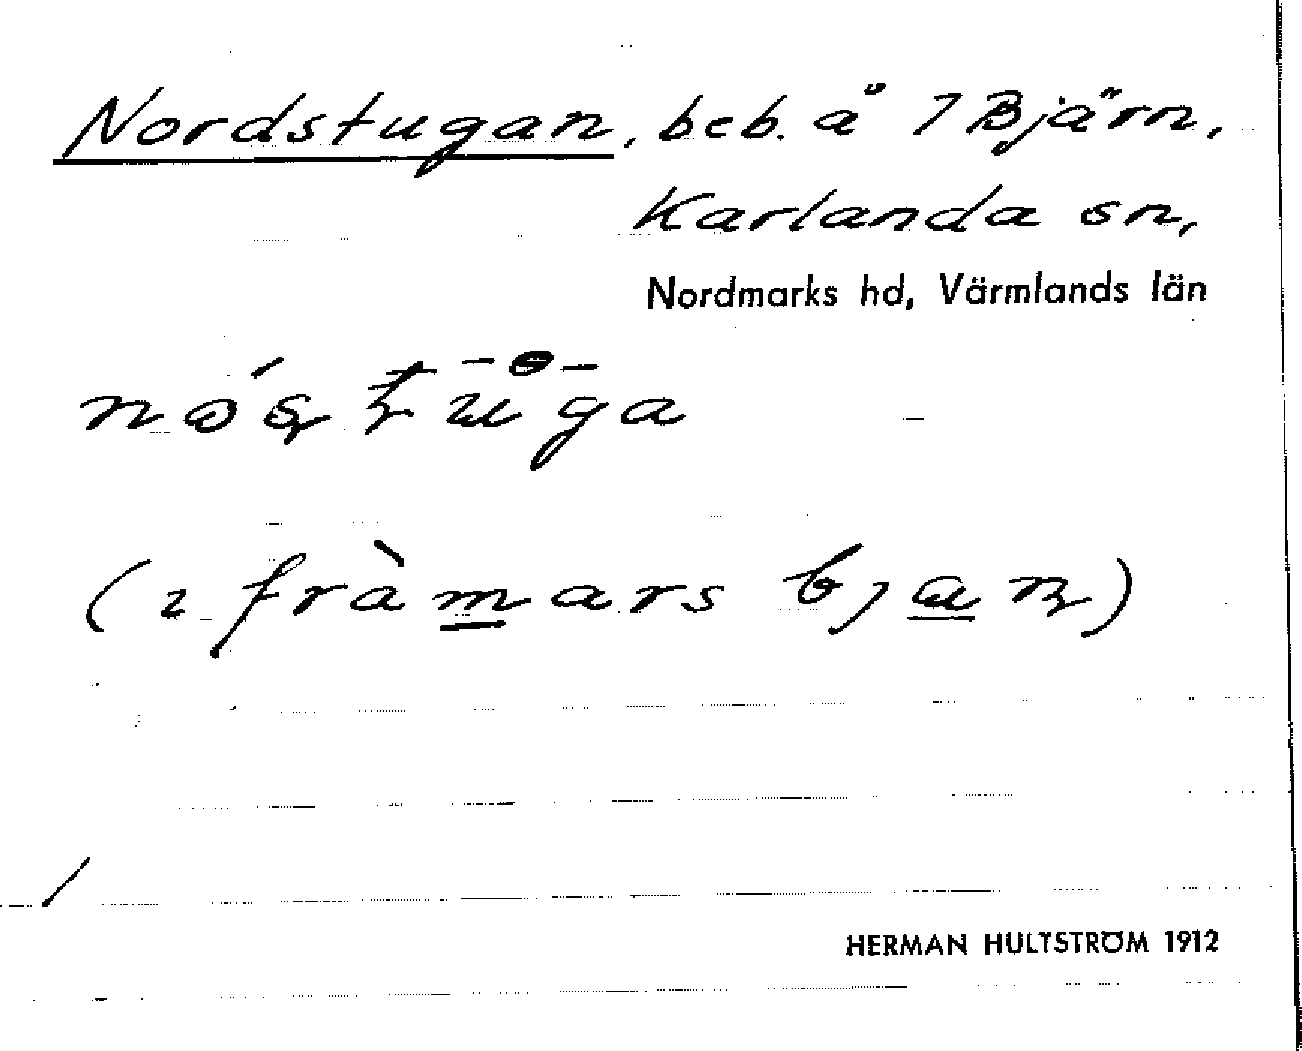 Nordstugan, beb. å 7 Bjärn,
Karlanda sn,
Nordmarks hd, Värmlands län
(ı fràmars
HERMAN HULTSTRÖM 1912